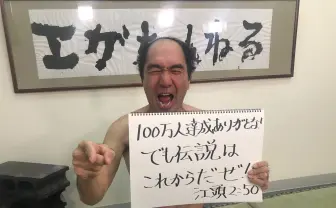 エがちゃんねる
100万人達成ありがとな
でも伝説は
これからだぜ!!
江頭2:50